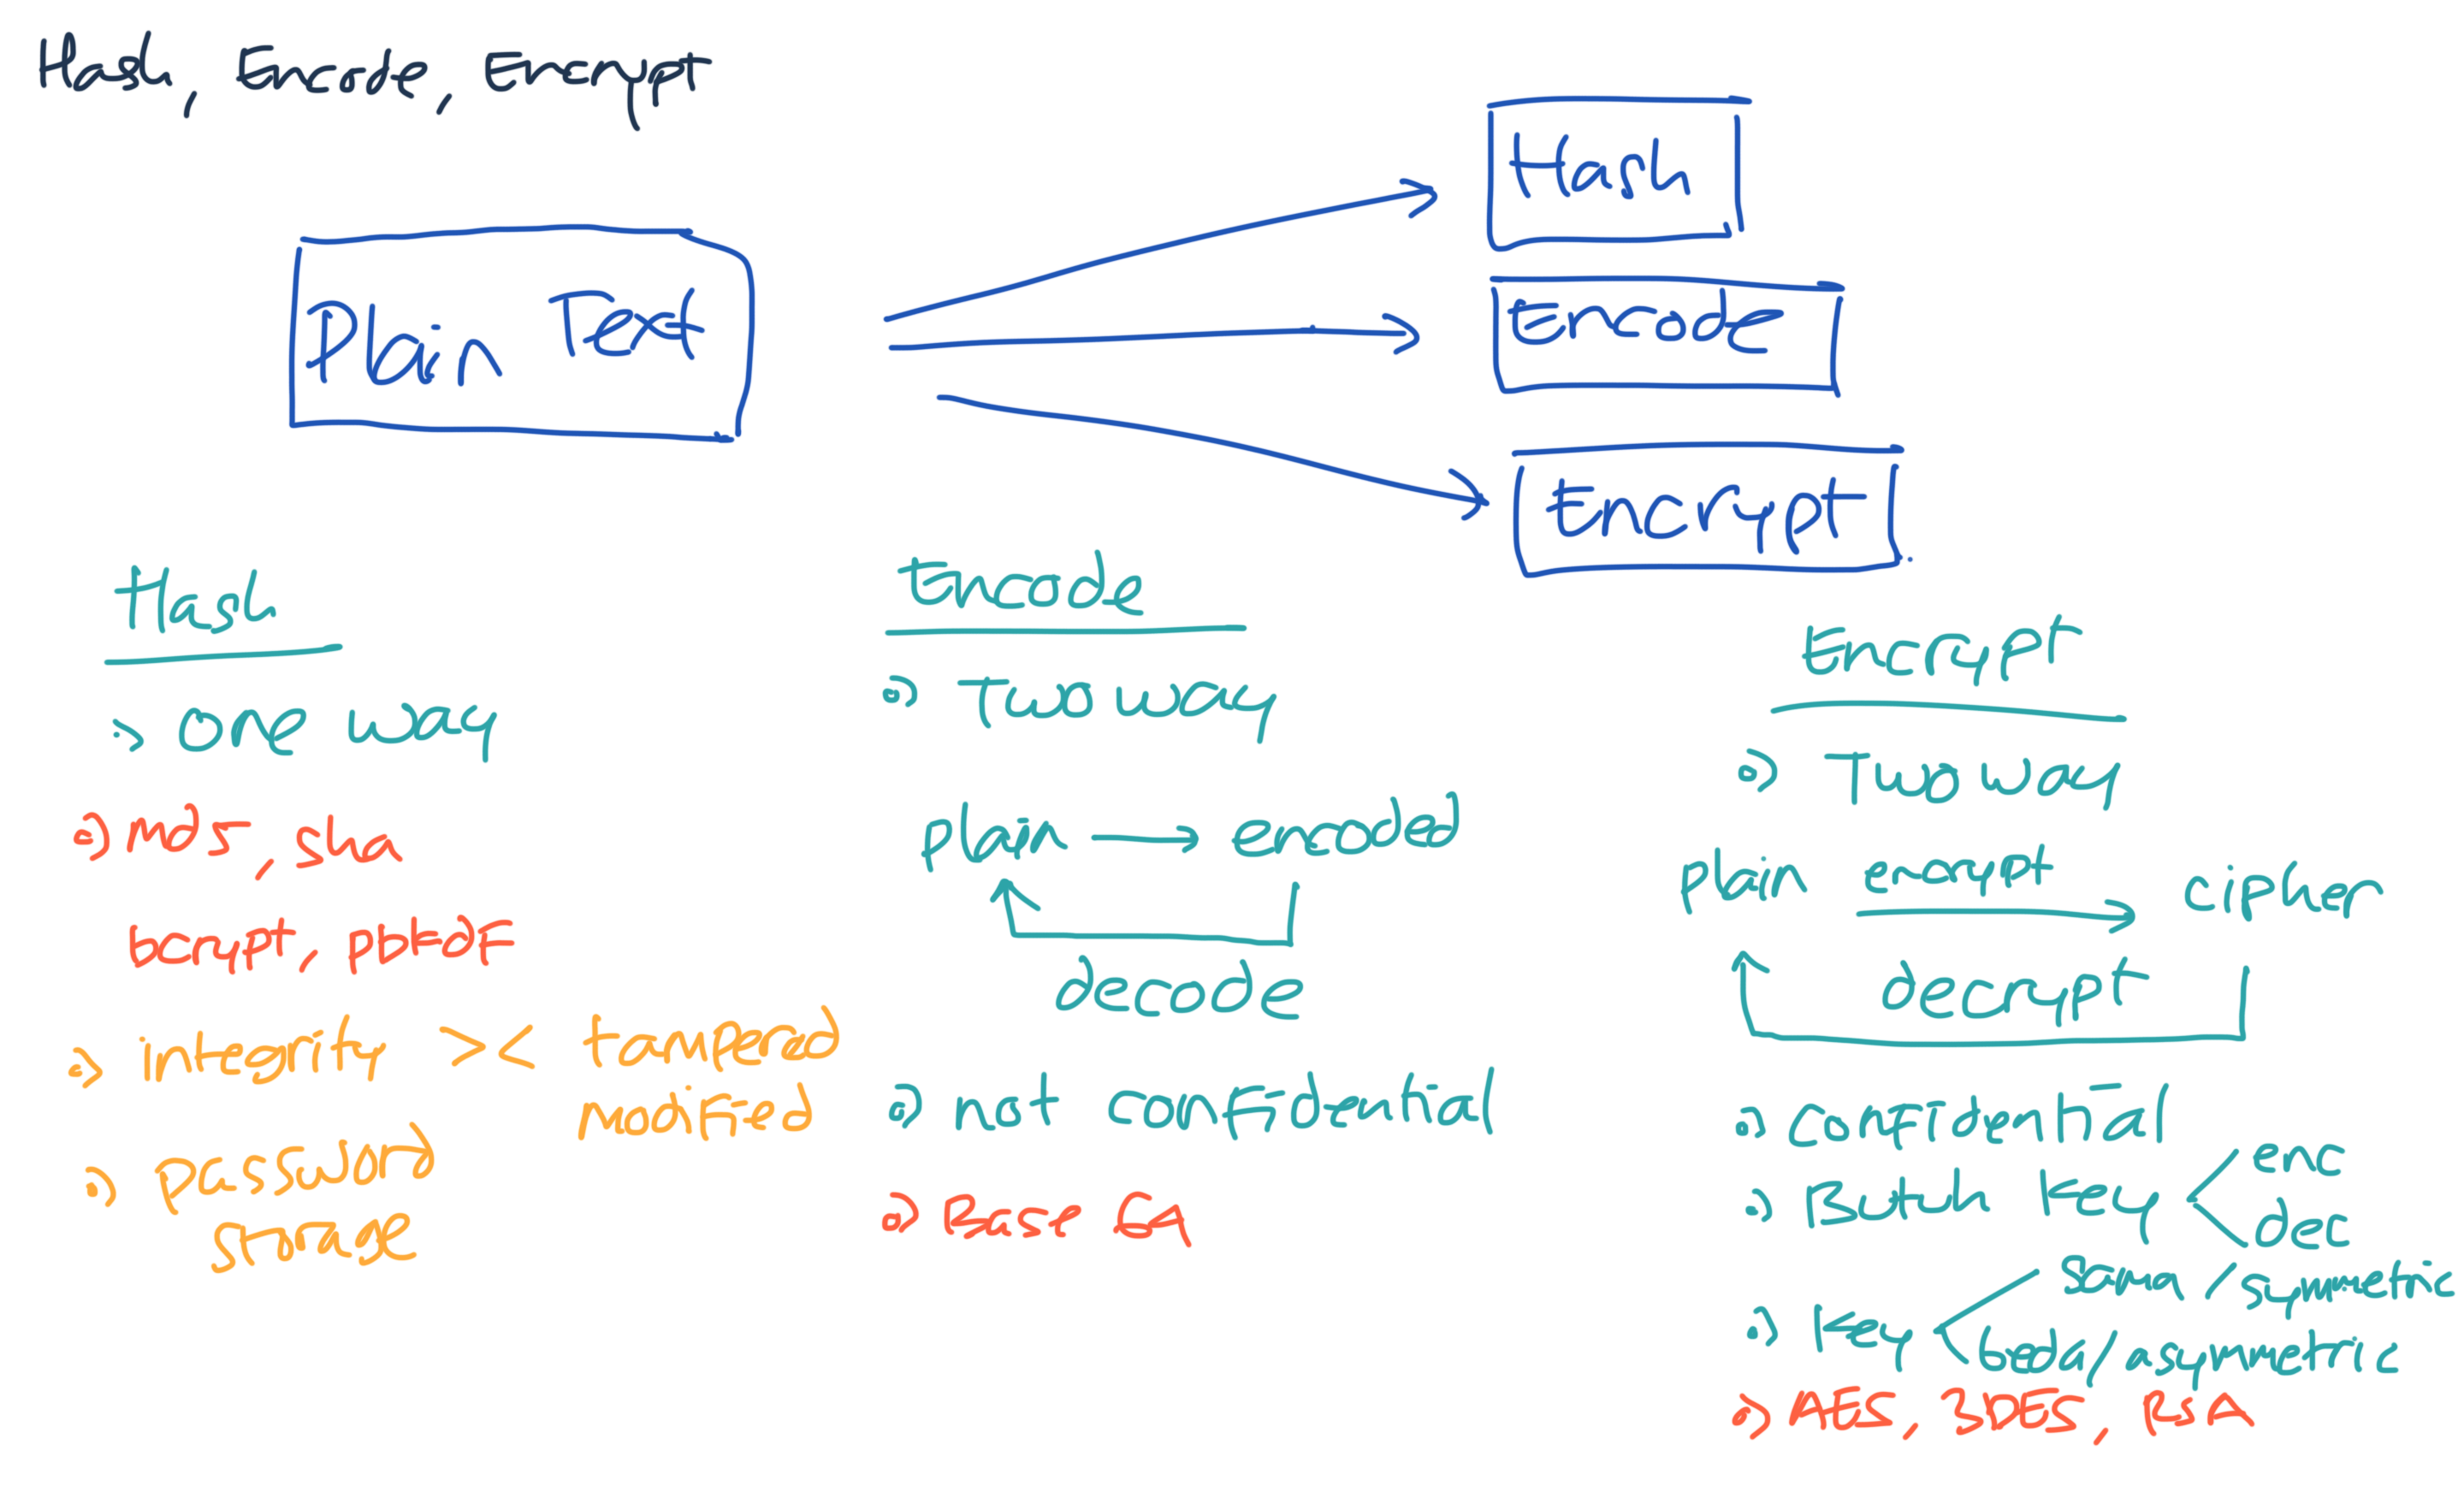 Hash, Encode, Encrypt
Plain Text
Hash
Encode
Encrypt
Hash
one way
md5, sha
bcrypt, pbkdf
integrity >< tampered
modified
password
storage
Encode
Two way
plain → encoded
decode
not confidential
Base 64
Encrypt
Two way
plain encrypt cipher
decrypt
confidential
Butuh key < enc
dec
key < sama / symmetric
beda / asymmetric
AES, 3DES, RSA